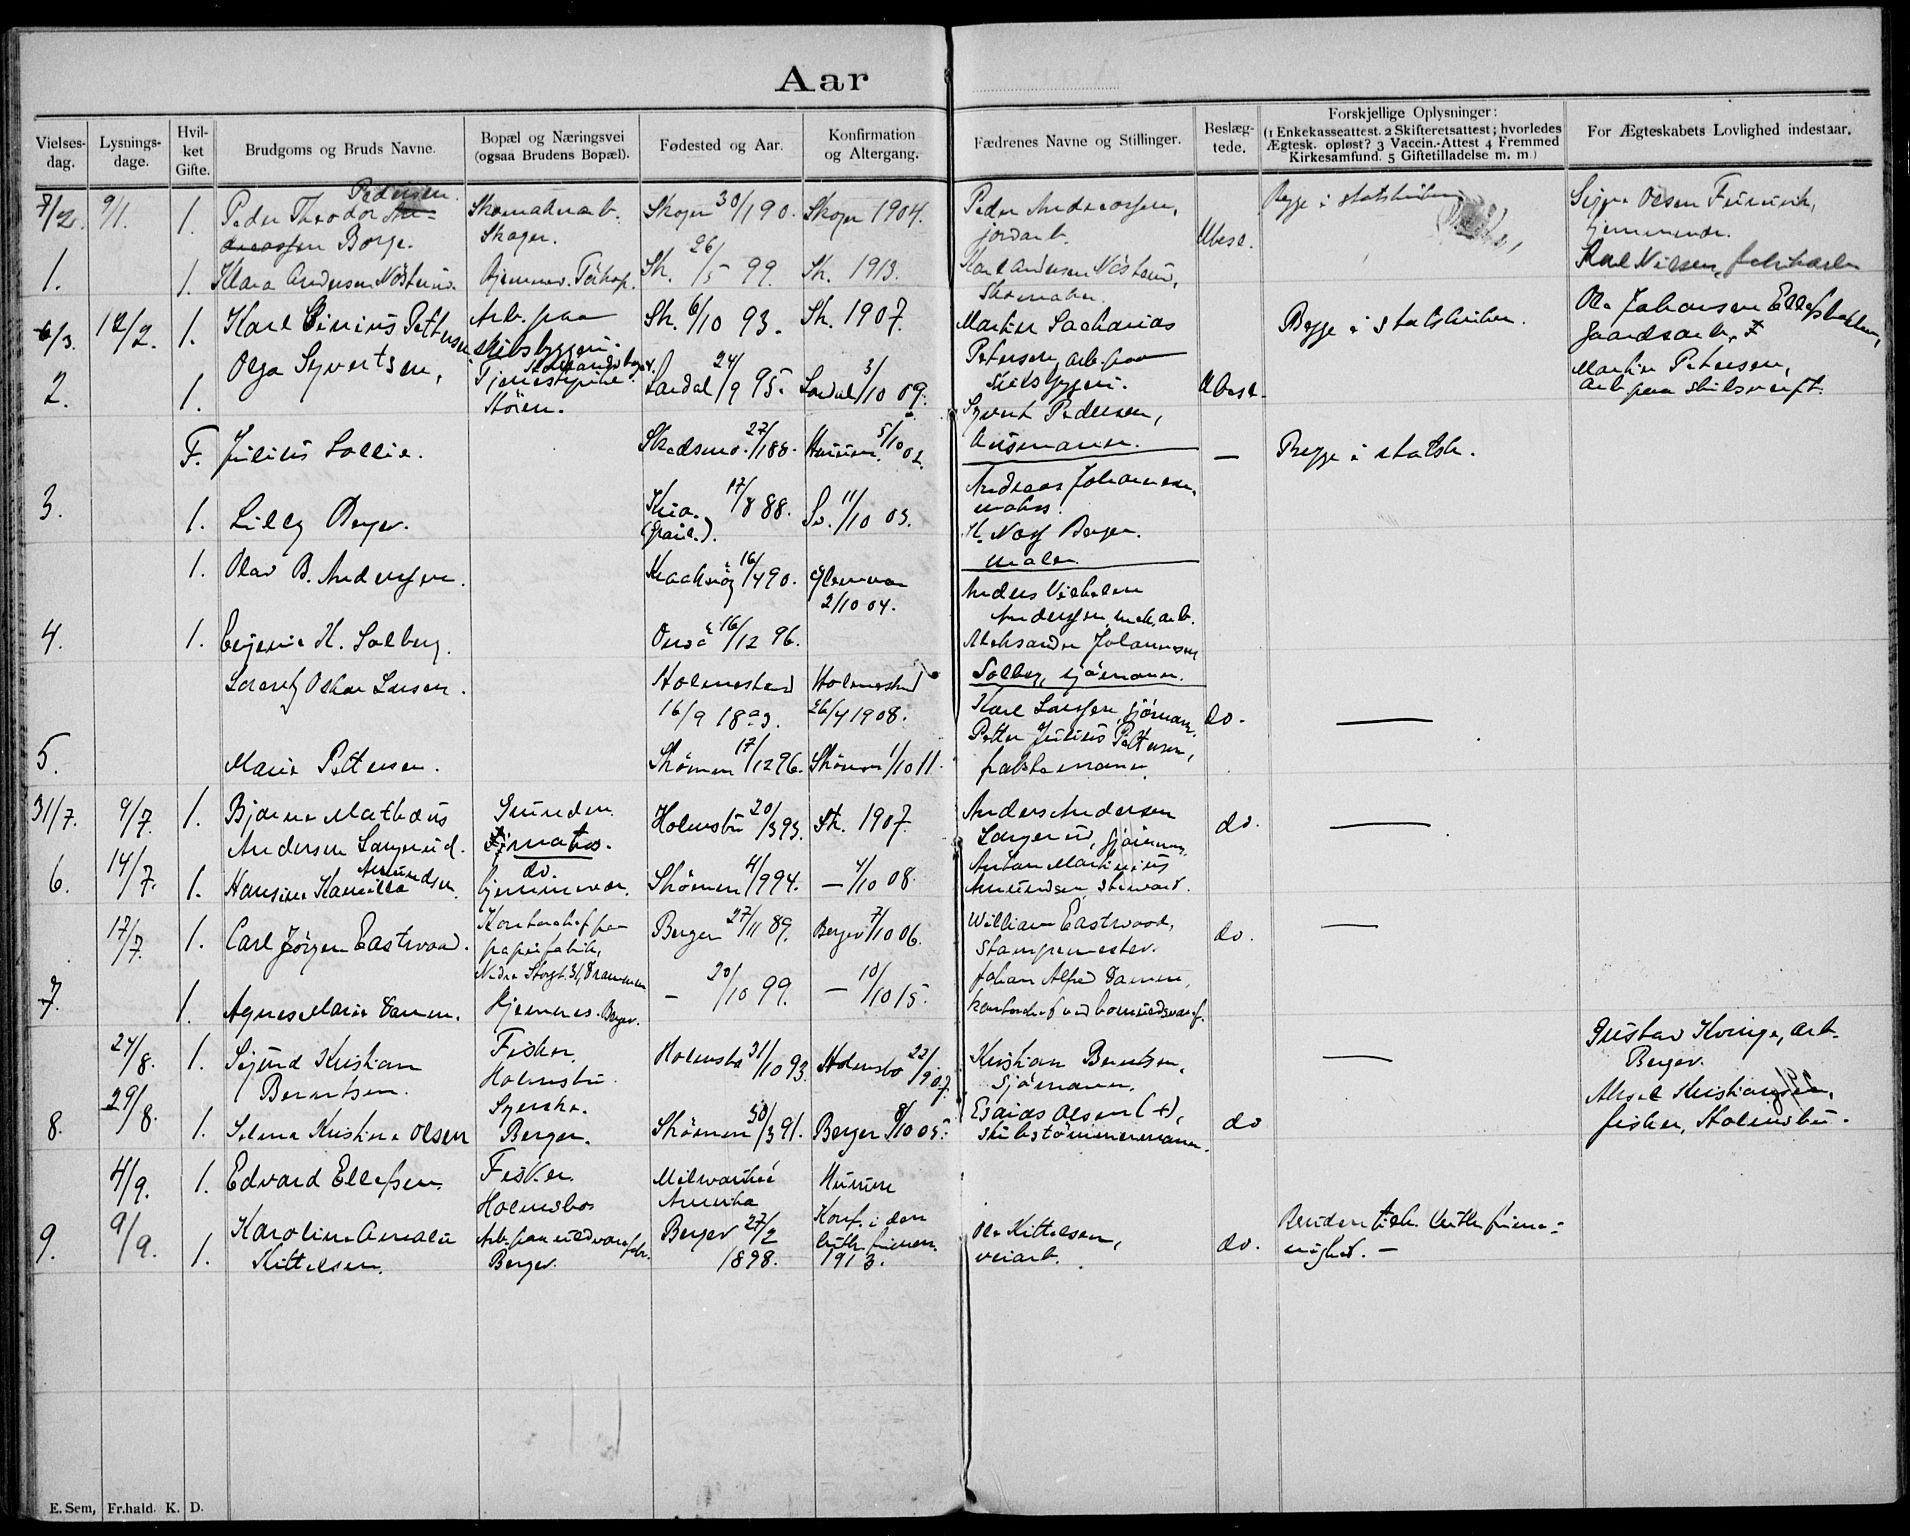 Aar
Vielses-dag.
Lysnings-dage.
Hvil-ket Gifte.
Brudgoms og Bruds Navne.
Bopæl og Næringsvei (ogsaa Brudens Bopæl).
Fødested og Aar.
Konfirmation og Altergang.
Fædrenes Navne og Stillinger.
Beslæg-tede.
Forskjellige Oplysninger:
(1 Enkekasseattest. 2 Skifteretsattest; hvorledes
Ægtesk. opløst? 3 Vaccin.-Attest 4 Fremmed
Kirkesamfund. 5 Giftetilladelse m. m.)
For Ægteskabets Lovlighed indestaar.
7/2. 9/1. 1. Peder Theodor Pedersen Skomakerarb. Skoger 30/1 90. Skoger 1904. Peder Andreassen, Begge i statskirken
Borge. Skoger. jordarb. Ubesl. hjemmeva.
1. 1. Klara Andersen Nøsterud. Hjemmev. Sk. 26/5 99. Sk. 1913. Karl Andersen Nøsterud, Karl Nilsen, fabrikarb.
Skomaker.
6/3. 12/2. 1. Karl Sinius Pettersen Arb. paa Sk. 6/10 93. Sk. 1907. Martin Sacharias Begge i statskirken. Ole Johansen
skibsbyggeri. Petersen, arb. paa gaardsarb.
2. 1. Olga Syvertsen, Tjenestepike Sandal 24/9 95. Sandal 3/10 09. skibsbyggeri. Ubesl. Martin Petersen,
Støren. Syvert Pedersen, arb. paa skibsverft.
F. Julius Sollie. Skedsmo. 27/1 88. Hurum. 5/10 02. — Begge i statsk.
Andreas Johannesen,
3. 1. Lilly Berger. Kria. 17/8 88. Sv. 11/10 03.
H. Berger.
maler.
1. Olav B. Anderssen. 16/4 90. Glemmen
2/10 04. Anders Vilhelm
Anderssen, mek. arb.
4. 1. Eugenie H. Solberg. Onsø 16/12 96. Aleksander Johannesen
Solberg, sjømann.
Lorentz Oskar Larsen. Holmestrand Holmestrand Karl Larssen, sjømann. do. —
16/9 1893. 26/4 1908. Petter Julius Pettersen,
5. Marie Pettersen. Skømen 17/12 96. Skømen 1/10 11. fabrikmann
31/7. 9/7. 1. Bjarne Mathæus Grunden. Holmsbu 20/3 93. St. 1907. Anders Andersen do. —
Andersen Langerud. matros. Langerud, sjømann.
6. 14/7. 1. Hansine Kamilla Amundsen do. hjemmevær. Skømen 4/9 94. — 4/10 08. Anton Martinius
Amundsen, steward.
17/7. 1. Carl Jørgen Eastwood. Kontorchef paa Berger 27/11 89. Berger 7/10 06. William Eastwood, do. —
papirfabrik, stampemester.
Nedre Storgt. 31, Drammen
7. 1. Agnes Marie Damm. Hjemmev. Berger. — 20/10 99. — 10/10 15. Johan Alfred Damm,
27/8. 1. Sigurd Kristian Fisker, Holmsbo 31/10 93. Holmsbo 22/9 07. Kristian Berntsen, — Gustav Kvinge, arb.
Berntsen. Holmsbu. Sjømann. Berger.
8. 29/8. 1. Selma Kristine Olsen Syerske. Skømen 30/3 91. Berger 8/10 05. Esaias Olsen (+), do Aksel Kristiansen,
Berger. skibstømmermann. fisker, Holmsbu.
4/9. 1. Edvard Ellefsen. Fisker. Milwaukee Hurum
Holmsbo Amerika
9. 9/9. 1. Karoline Amalie Arb. paa uldvarefabr. Berger 27/2 Konf. i den Ole Kittelsen, do. Bruden tilh. luth. frime-
Kittelsen. Berger. 1898. luth. frimen. 1913. veiarb. nighed. —
E. Sem, Fr.hald. K. D.